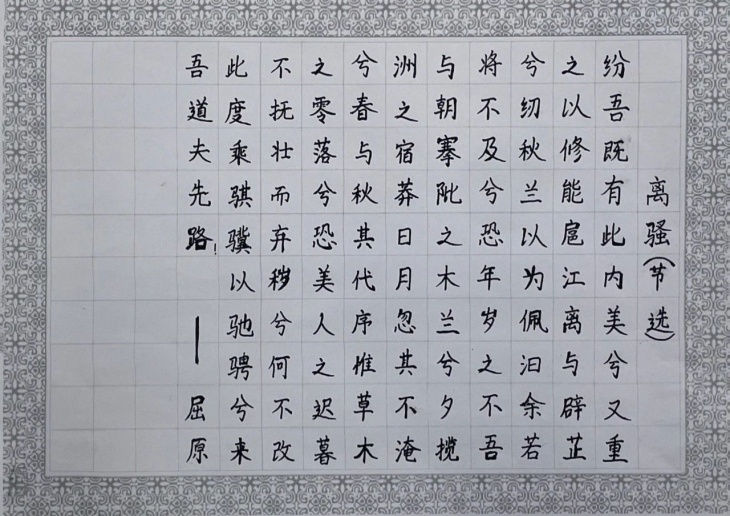 离骚(节选)
纷吾既有此内美兮又重
之以修能扈江离与辟芷
兮纫秋兰以为佩汩余若
将不及兮恐年岁之不吾
与朝搴阰之木兰兮夕揽
洲之宿莽日月忽其不淹
兮春与秋其代序惟草木
之零落兮恐美人之迟暮
不抚壮而弃秽兮何不改
此度乘骐骥以驰骋兮来
吾道夫先路!——屈原